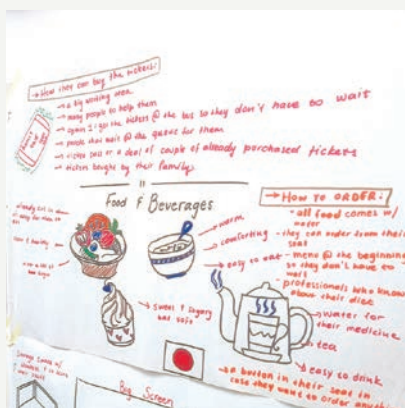 → How they can buy the tickets:
→ a big waiting area
→ many people to help them
→ option 1: get the tickets @ the bus so they don't have to wait
→ people that wait @ the queue for them
→ ticket pass or a deal of couple of already purchased tickets
→ tickets bought by their family
Food & Beverages
→ HOW TO ORDER:
- all food comes w/ water
- they can order from their seat
- menu @ the beginning so they don't have to wait
- professionals who know about their diet
→ warm
comforting
→ easy to eat
→ sweet & sugary but safe
→ water for their medicine
→ tea
→ easy to drink
→ a button in their seat in case they want to order
Big Screen